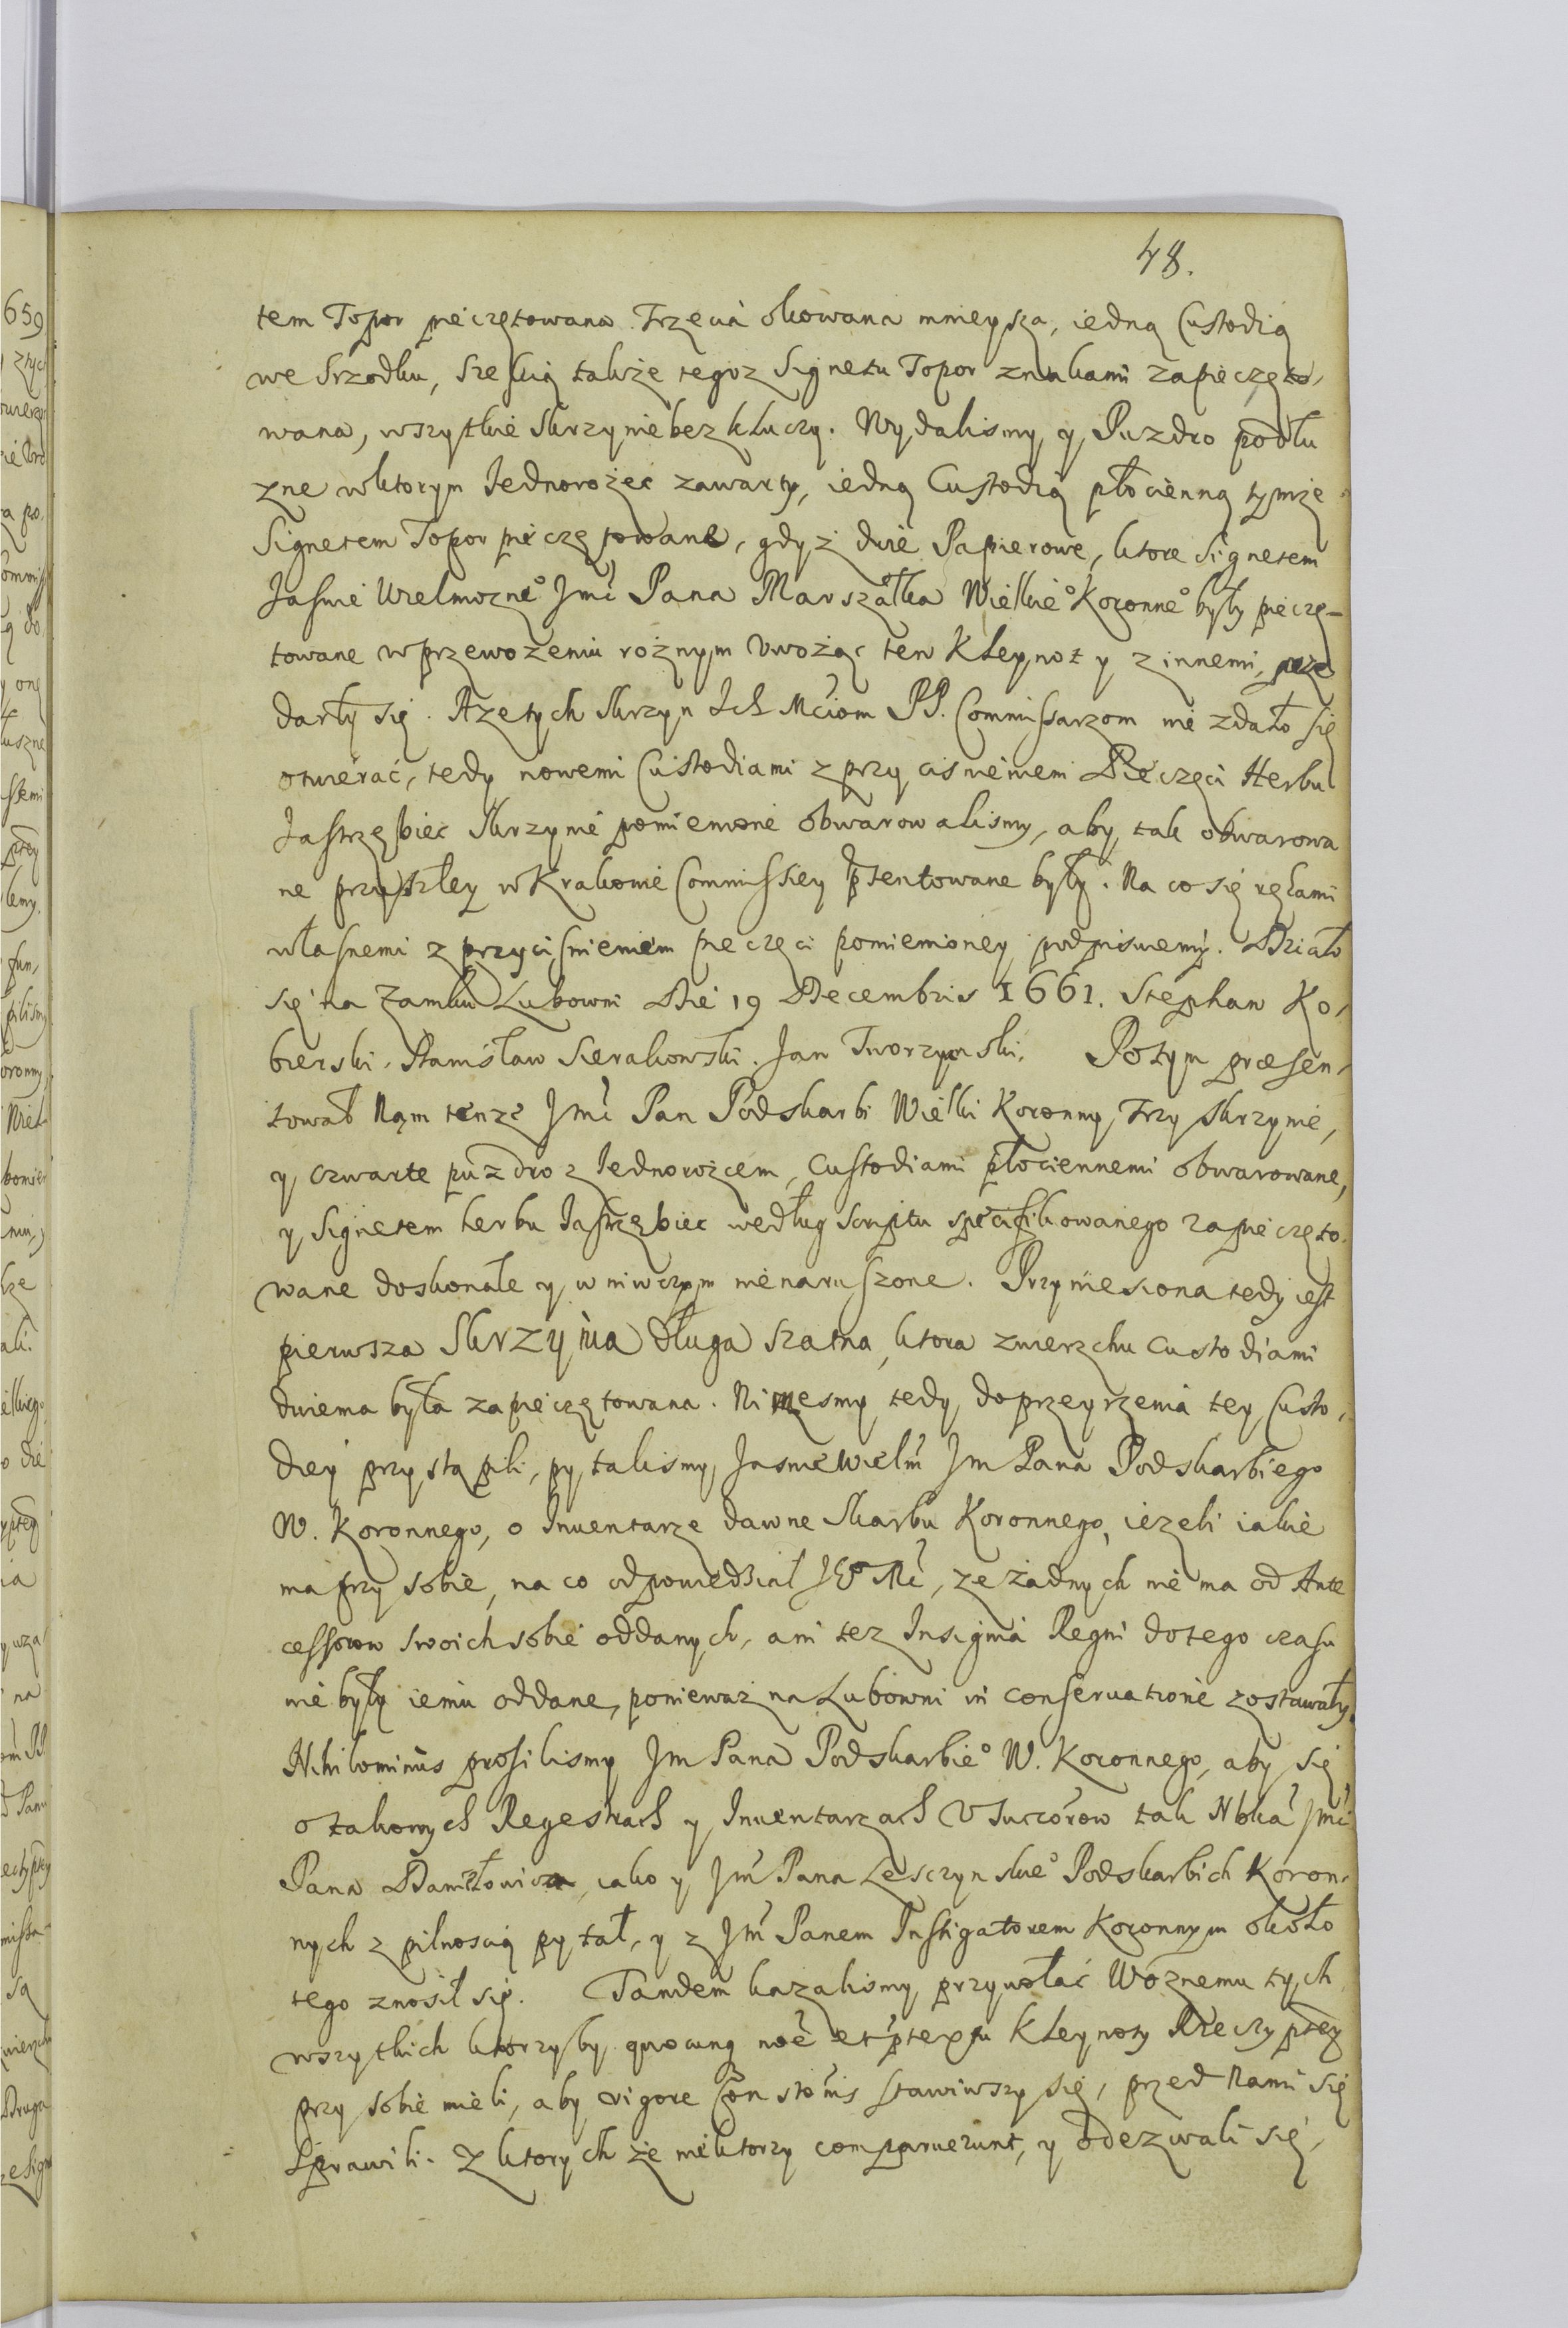 48.
tem Topor pieczętowana. Trzecia okowana mnieysza, iedną Custodią
we srzodku, szeską także tegoz Signetu Topor znakami zapieczęto,
wana, wszytkie skrzynie bez kluczy. Wydalismy y Puzdro podłu
zne w ktorym Iednorożec zawarty, iedną Custodią płocienną tymże
Signetem Topor pieczętowane, gdyż dwie Papierowe, ktore Signetem
Jasnie Wielmozne° Jmci Pana Marszałka Wielkie° Koronne° były pieczę-
towane w przewożeniu rożnym Uwożąc ten Kleynot y z innemi, prze
darły się. Aże tych skrzyn Ich Mciom PP. Commissarzom nie zdało się
otwierać, tedy nowemi Custodiami z przyciśnieniem Pieczęci Herbu
Jastrzębiec skrzynie pomienione obwarowalismy, aby tak obwarowa
ne przyszłey w Krakowie Commissiey psentowane były. Na co się rękami
własnemi z przyciśnieniem pieczęci pomienioney podpisuiemy. Działo
się na Zamku Lubowni Die 19 Decembris 1661. Stephan Ko,
bierski. Stanisław Sierakowski. Jan Tworzyanski. Potym præsen,
tował Nąm tenże Jmć Pan Podskarbi Wielki Koronny, Trzy skrzynie,
y czwarte puzdro z Iednorożcem, Custodiami płociennemi obwarowane,
y Signetem herbu Jastrzębiec według scriptu specifikowanego zapieczęto,
wane doskonale y w niwczym nienaruszone. Przyniesiona tedy iest
pierwsza Skrzynia długa szatna, ktora zwierzchu custodiami
dwiema była zapieczętowana. Nimesmy tedy do przeyrzenia tey Custo,
diey przystąpili, pytalismy Jasnie Wielm Jm Pana Podskarbiego
W. Koronnego, o Inventarze dawne Skarbu Koronnego, ieżeli iakie
ma przy sobie, na co odpowiedział JE° Mć, ze żadnych nie ma od Ante
cessorow swoich sobie oddanych, ani tez Insignia Regni do tego czasu
nie były iemu oddane, ponieważ na Lubowni in conseruatione zostawały.
Nihilominus prosilismy Jm Pana Podskarbie° W. Koronnego, aby się
o takowych Regestrach y Inuentarzach U Succorow tak Nbka Jmci
Pana Daniłowicza, iako y Jm Pana Lesczynskie° Podskarbich Koron,
nych z pilnoscią pytał, y z Jm Panem Instigatorem Koronnym około
tego znosił się. Tandem kazalismy przywołać Woznemu tych
wszytkich ktorzyby quocunq noe et ptextu Kleynoty Rzeczyptey
przy sobie mieli, aby vigore Constonis stawiwszy się, przed Nami się
sprawili. Z ktorych że niektorzy comparuerunt, y odezwali się,